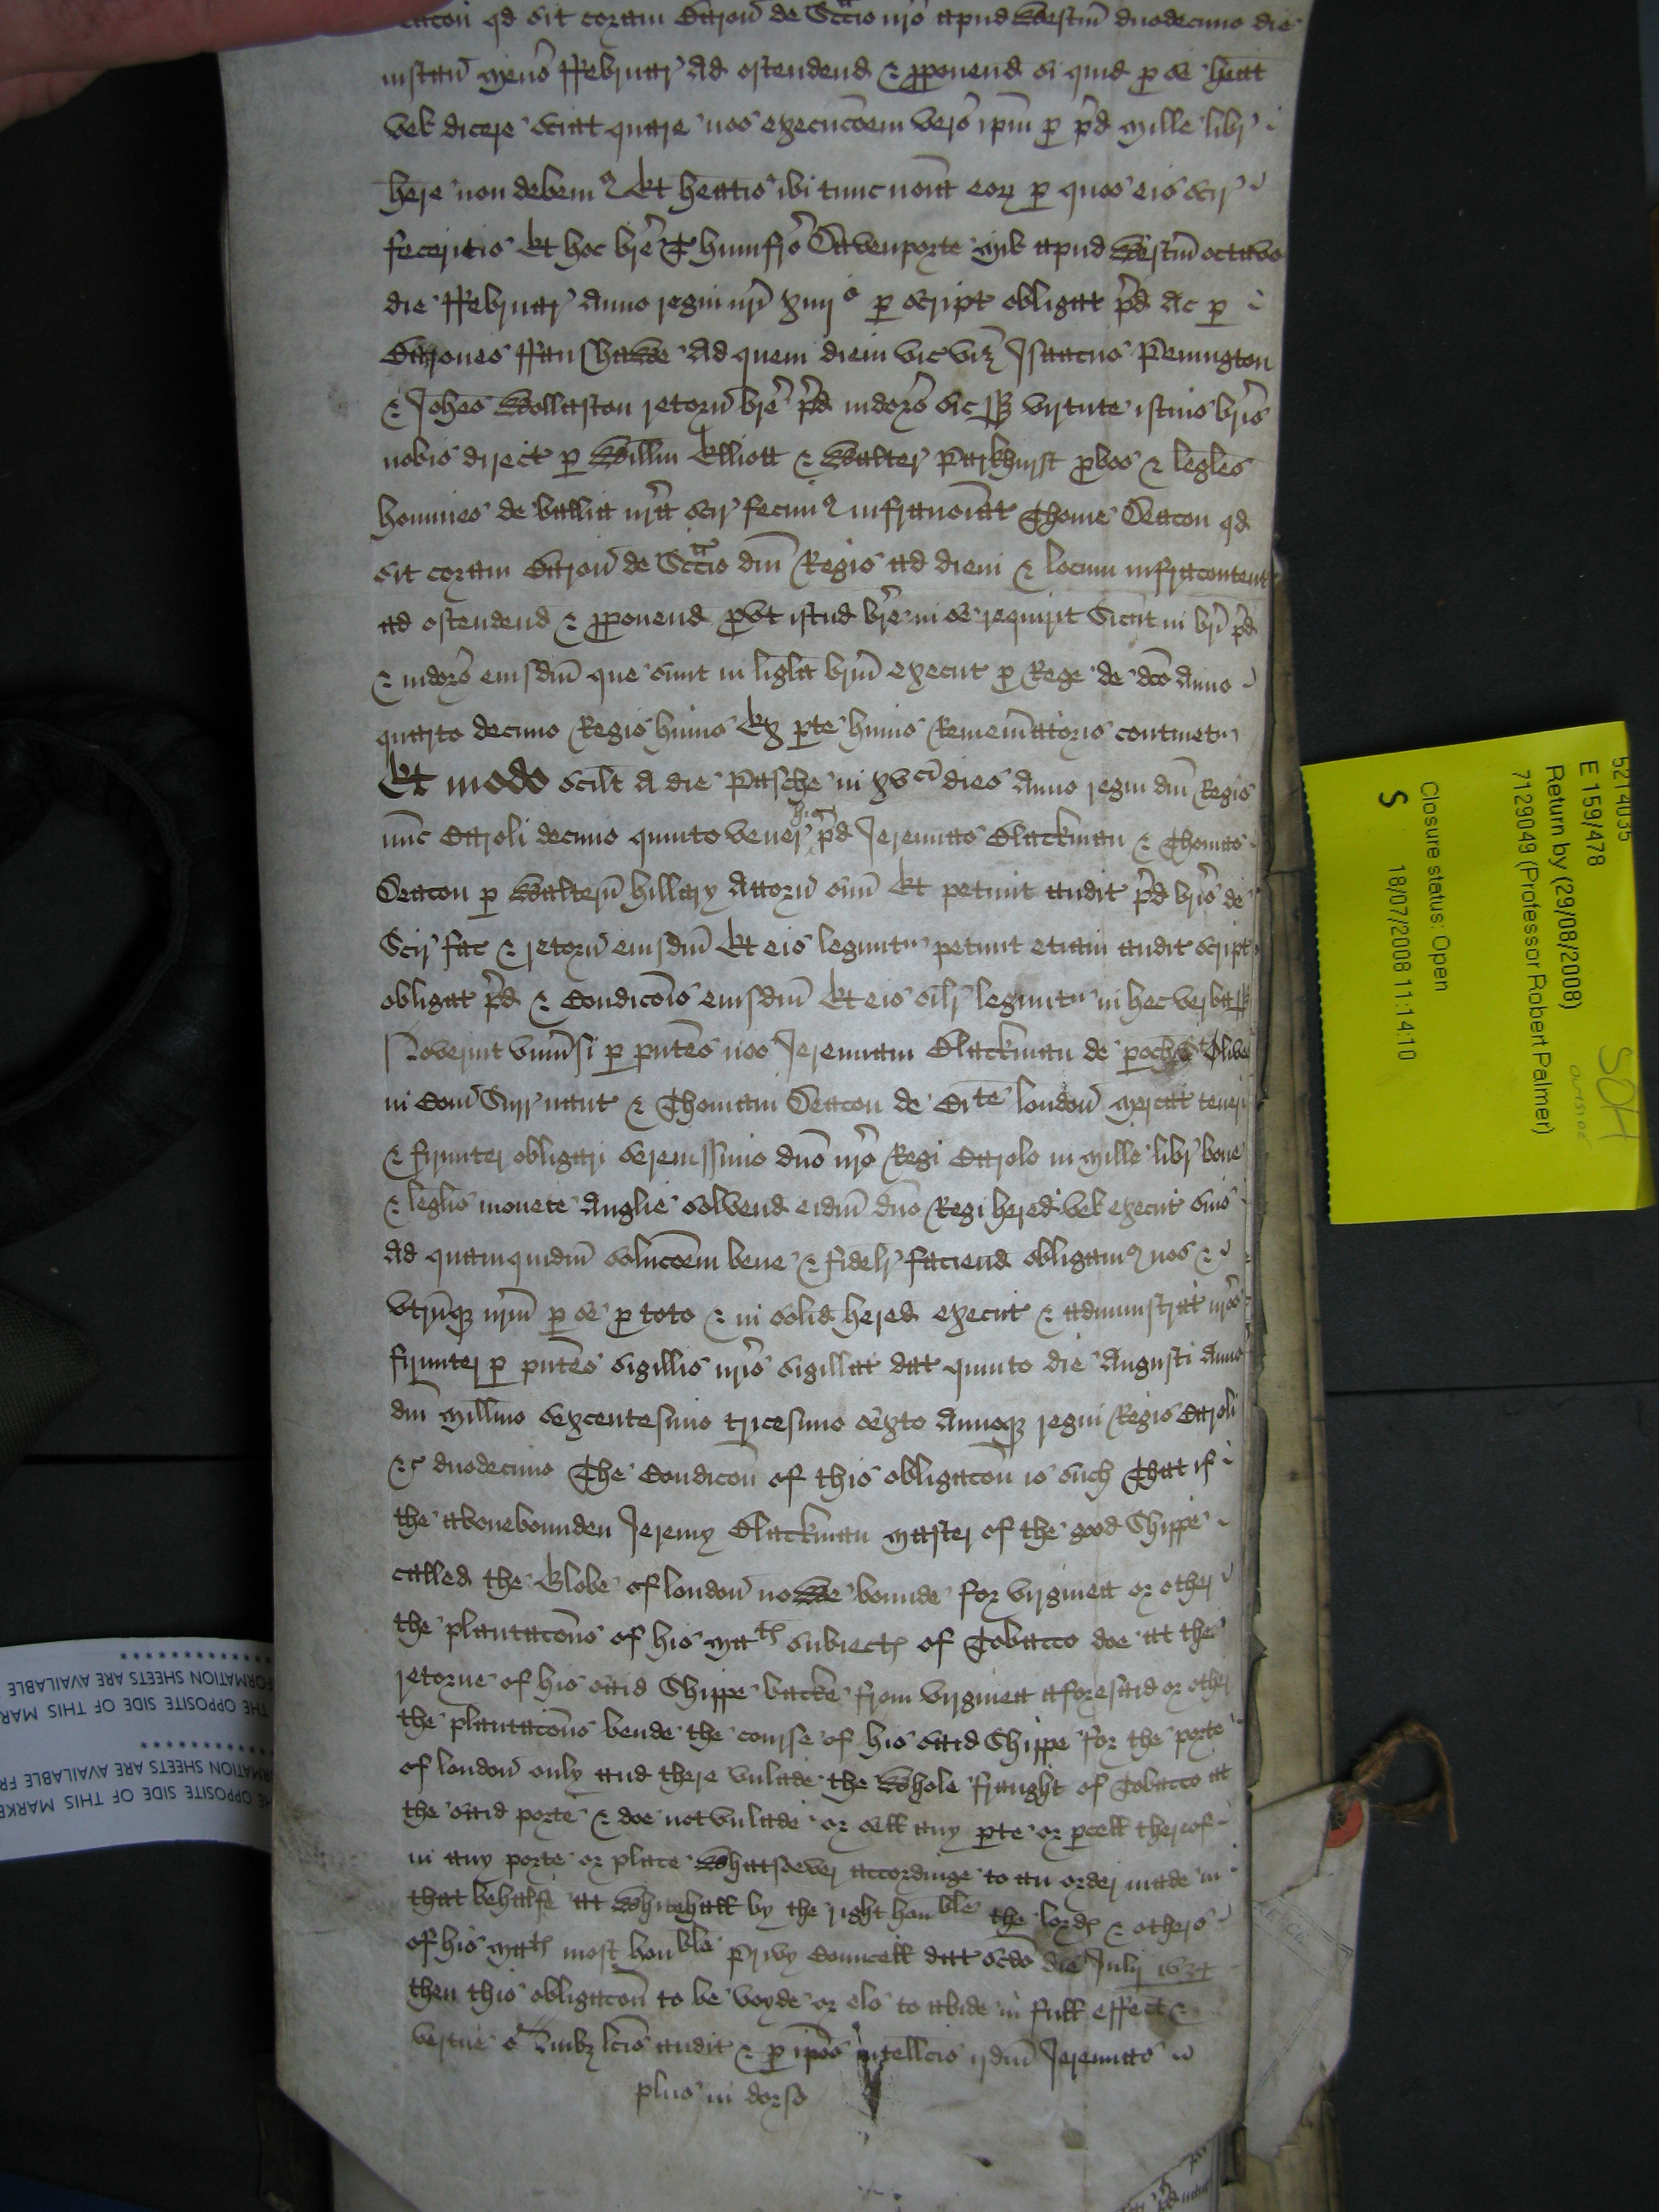 Deacon qd sit coram Baron de Sccio nro apud Westm duodecimo die
instan mens Februar Ad ostendend & proponend si quid p se heat
vel dicere sciat quare nos execucoem vers ipm p pd mille libr
here non debem9 Et heatis ibi tunc noia eor p quos eis scir
feceritis Et hoc bre T Humfro Davenporte Mil apud Westm octavo
die Februar Anno regni nri xiiijo p script obligat pd Ac p
Barones Fanshawe Ad quem diem vic viz Isaacus Penington
& Johes Wollaston retorn bre pd indors sic ss virtute istius bris
nobis direct p Willm Elliott & Walter Parkhurst pbos & legles
homines de ballia nra scir fecim9 infranoiat Thome Deacon qd
sit coram Baron de Sccio dni Regis ad diem & locum infracontent
ad ostendend & proponend pvt istud bre in se requirit Sicut in bri pd
& indors eiusdm que sunt in ligla brium execut p Rege de dco Anno
quarto decimo Regis huius Ex pte huius Rememoratoris continetur
Et modo scilt A die Pasche in xvcim dies Anno regni dni Regis
nunc Caroli decimo quinto vener hic pd Jeremias Blackman & Thomas
Deacon p Walterum Hillary Attorn suum Et petiut audit pd bris de
Scir fac & retorn eiusdm Et eis leguntur petunt etiam audit script
obligat pd & Condicois eiusdm Et eis silr leguntur in hec verba ss
Noverint univsi p pntes nos Jeremiam Blackman de poch St Olives
in Com Surr naut & Thomam Deacon de Cite London Mercat teneri
& firmiter obligari Serenissimo dno nro Regi Carolo in Mille libr bone
& leglis monete Anglie solvend eidm dno Regi hered vel execut suis
Ad quamquidm solucoem bene & fidelr faciend obligam9 nos &
utrumq nrm p se p toto & in solid hered execut & administrat nros
firmiter p pntes sigillis nris sigillat dat quinto die Augusti Anno
dni Millmo sexcentesimo tricesimo sexto Annoq regni Regis Caroli
&c duodecimo The Condicon of this obligacon is such That if
the abovebounden Jeremy Blackman Master of the good Shippe
called the Globe of London nowe bounde for Virginea or other
the plantacons of his Mats subiects of Tobacco doe at the
retorne of his said Shippe backe from Virginea aforesaid or other
the plantacons bende the course of his said Shippe for the porte
of London only and there unlade the Whole fraught of Tobacco at
the said porte & doe not unlade or sell any pte or pcell thereof
in any porte or place Whatsoever accordinge to an order made in
that behalfe at Whitehall by the right honble the Lords & others
of his Mats most honble Privy Councell dat scdo die Julij 1634
then this obligacon to be voyde or els to abide in full effect &
vertue Quibz lcis audit & p ipos intellcis ijdm Jeremias
plus in dorso
5214035
E 159/478
Return by (29/08/2008)
7129049 (Professor Robert Palmer)
Closure status: Open
S 18/07/2008 11:14:10
THE OPPOSITE SIDE OF THIS MARK
FORMATION SHEETS ARE AVAILABLE
**********
THE OPPOSITE SIDE OF THIS MARKE
RMATION SHEETS ARE AVAILABLE FR
**********